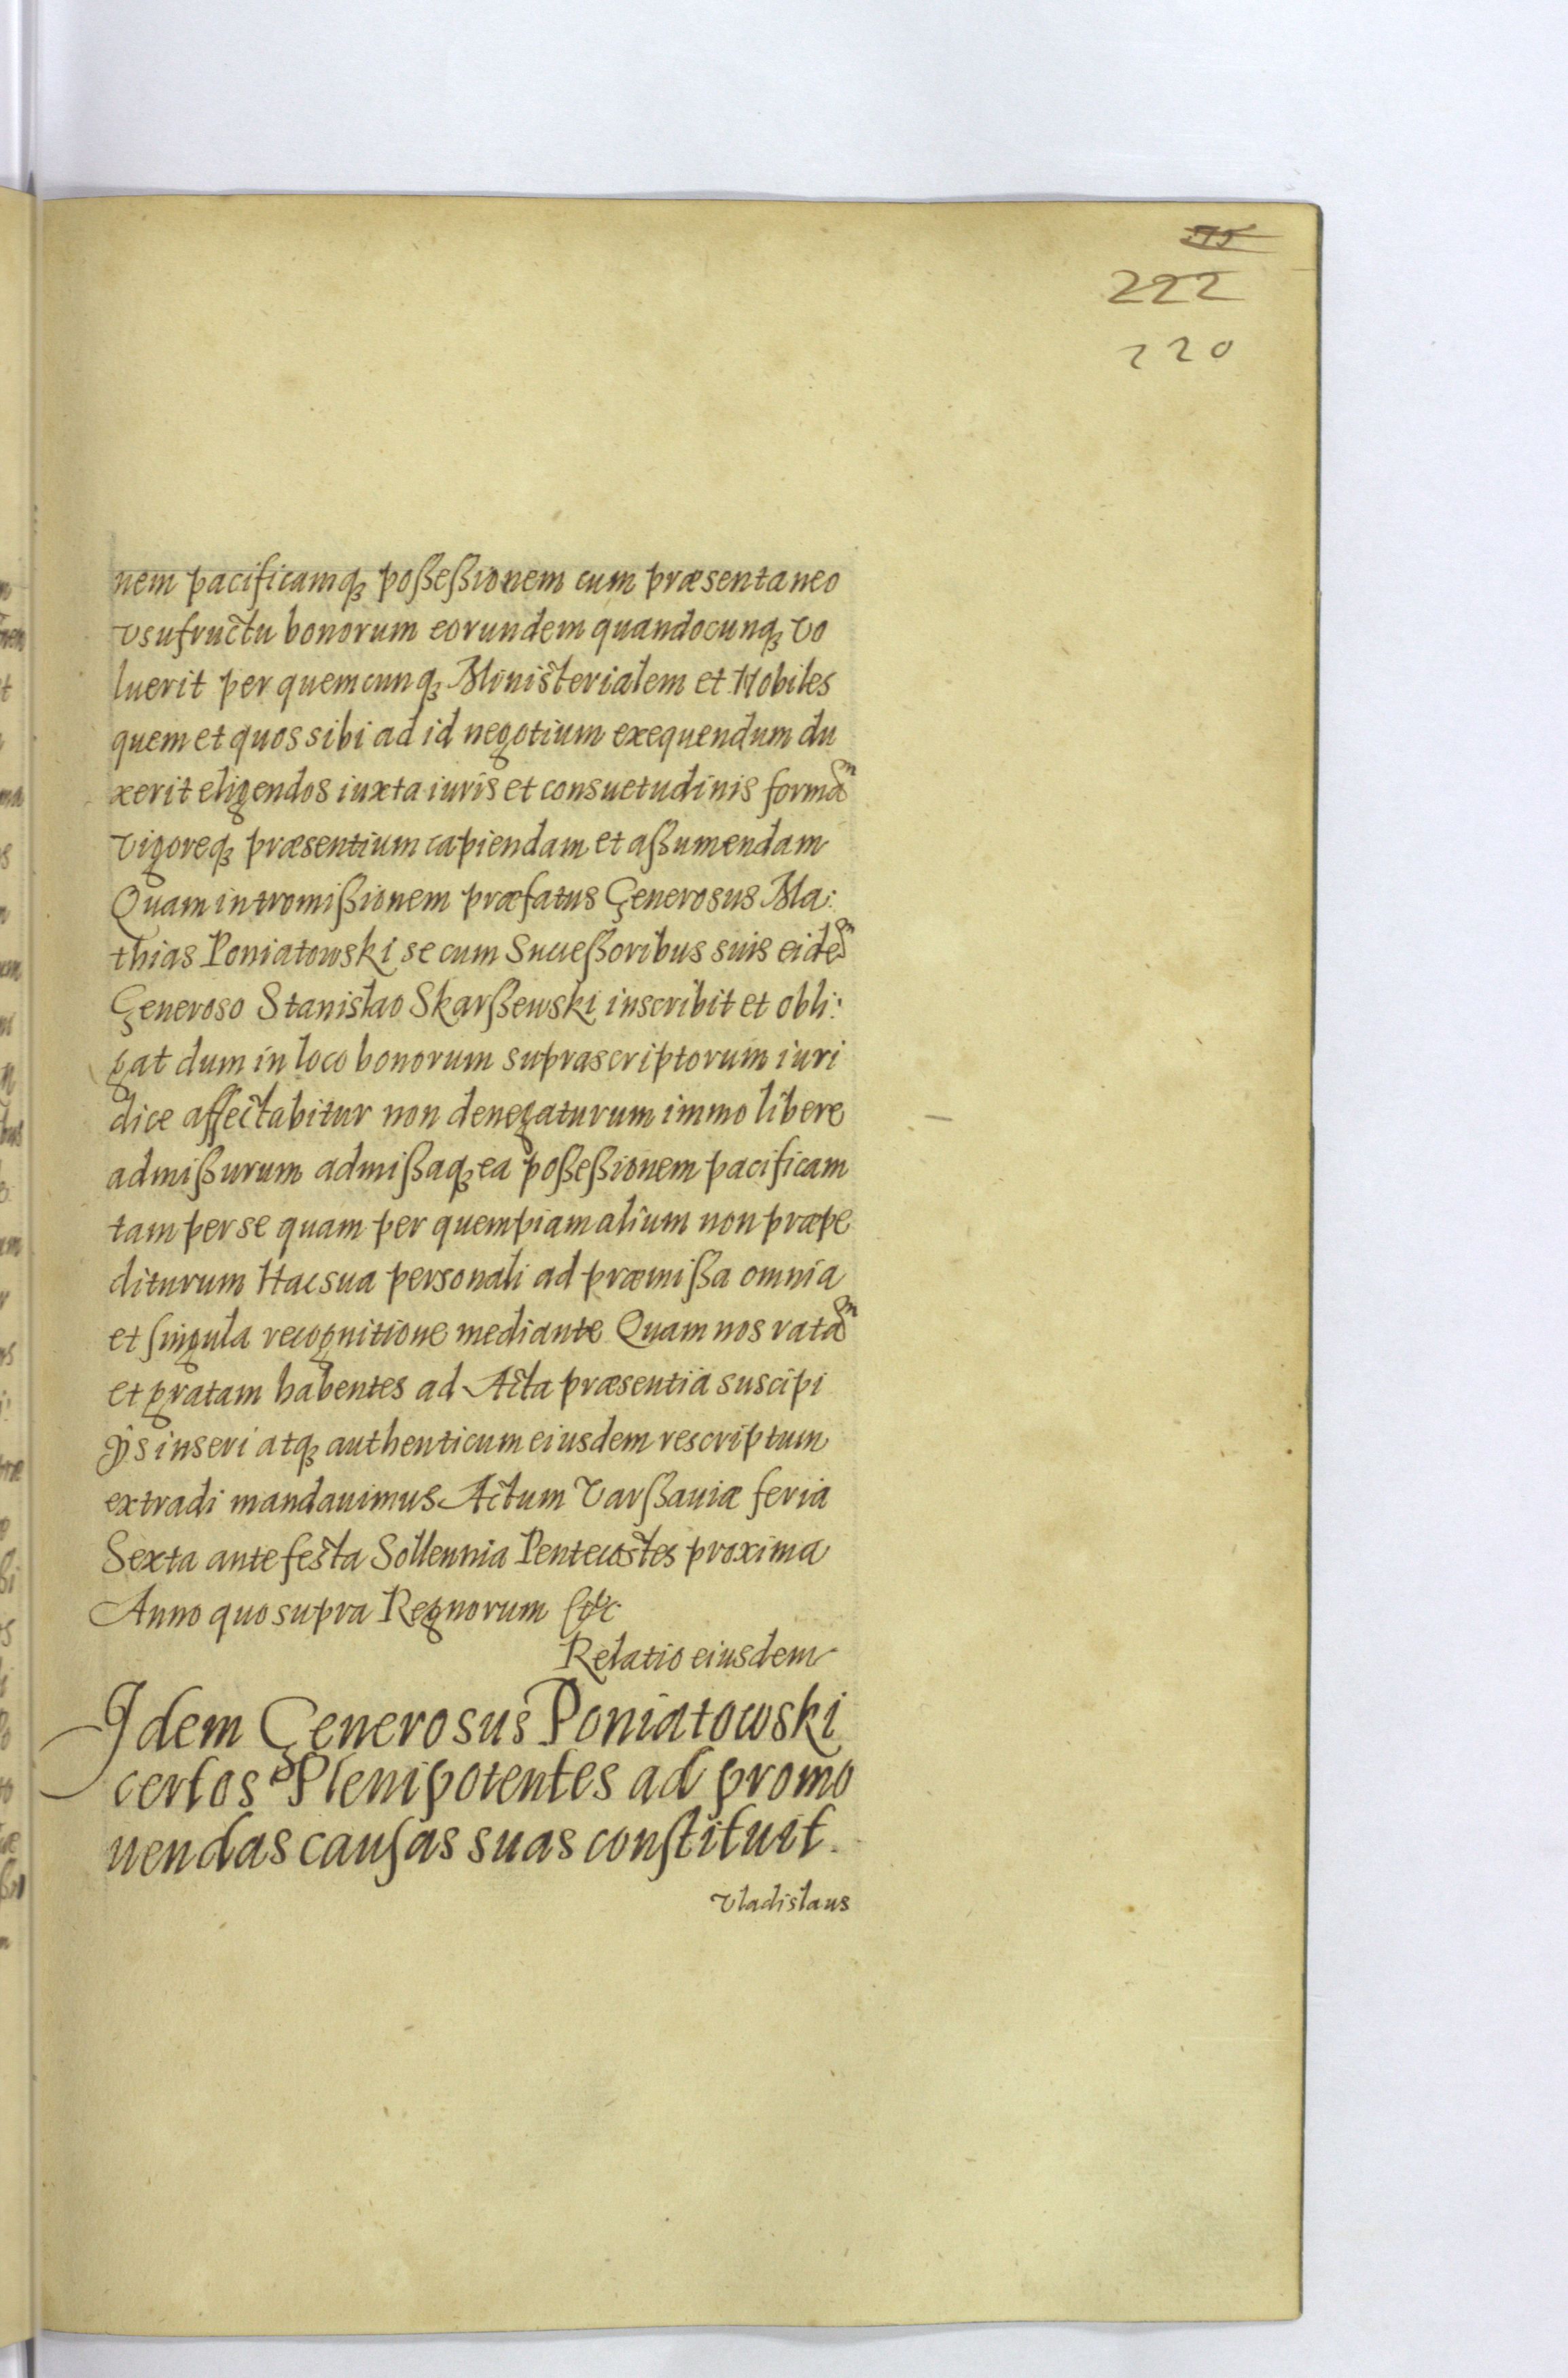 222
220
nem pacificamq₃ poßeßionem cum præsentaneo
vsufructu bonorum eorundem quandocunq₃ vo
luerit per quemcunq₃ Ministerialem et Nobiles
quem et quos sibi ad id negotium exequendum du
xerit eligendos iuxta iuris et consuetudinis formaͫ
vigoreq₃ præsentium capiendam et aßumendam
Quam intromißionem præfatus Generosus Ma:
thias Poniatowski se cum Succeßoribus suis eideͫ
Generoso Stanislao Skarßewski inscribit et obli:
gat dum in loco bonorum suprascriptorum iuri
dice affectabitur non denegaturum immo libere
admißurum admißaq₃ ea poßeßionem pacificam
tam per se quam per quempiam alium non præpe
diturum Hac sua personali ad præmißa omnia
et singula recognitione mediante Quam nos rataͫ
et gratam habentes ad Acta præsentia suscipi
ijs inseri atq₃ authenticum eiusdem rescriptum
extradi mandauimus Actum Varßauiæ feria
Sexta ante festa Sollennia Pentecostes proxima
Anno quo supra Regnorum &c
Relatio eiusdem
Idem Generosus Poniatowski
certos Plenipotentes ad promo
uendas causas suas constituit.
Vladislaus